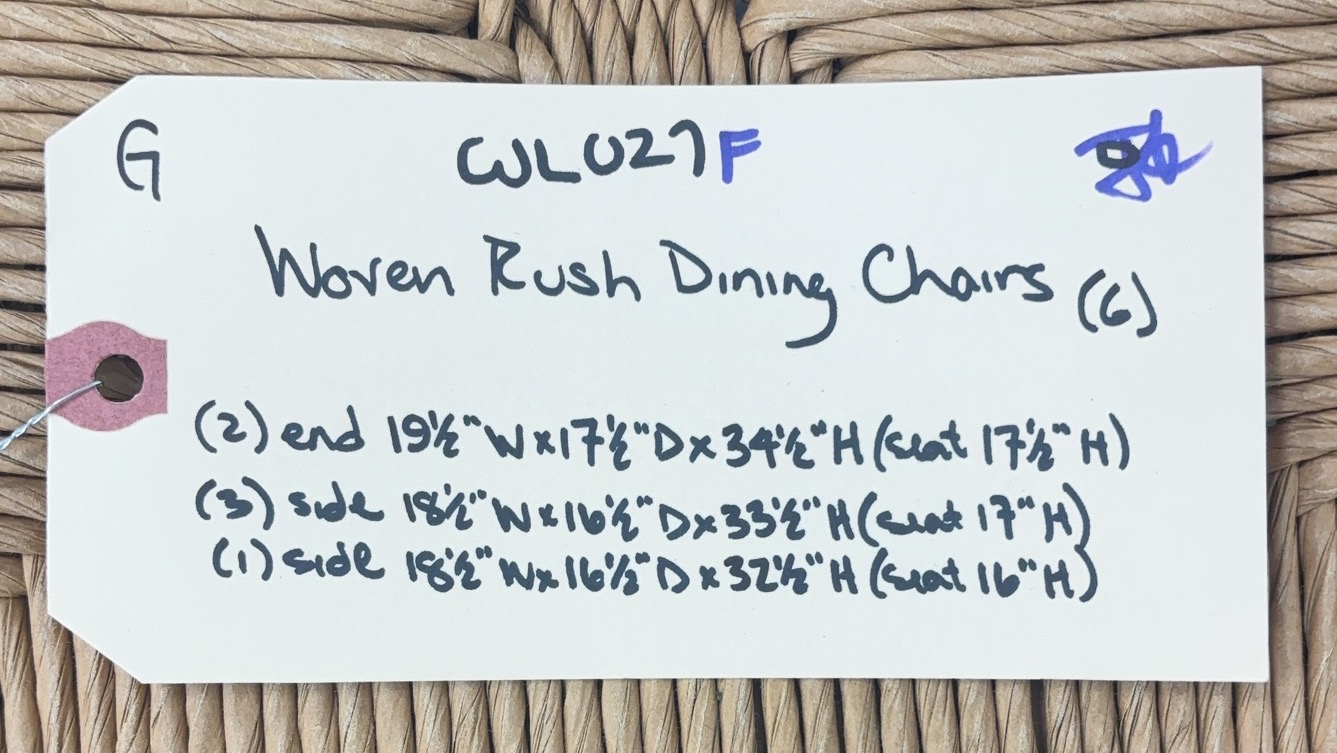 G CWL027F
Woven Rush Dining Chairs (6)
(2) end 19½" W x 17½" D x 34½" H (seat 17½" H)
(3) side 18½" W x 16½" D x 33½" H (seat 17" H)
(1) side 18½" W x 16½" D x 32½" H (seat 16" H)